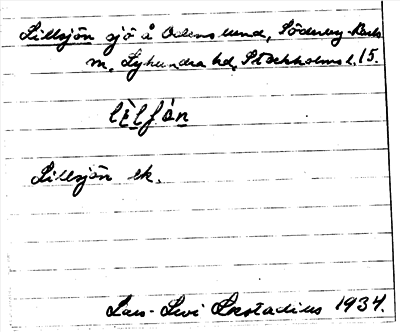 Lillsjön sjö å Odenslund, Söderby-Karls
m, Lyhundra hd, Stockholms l. 15.
lìlʃön
Lillsjön ek.
Lars-Levi Læstadius 1934.